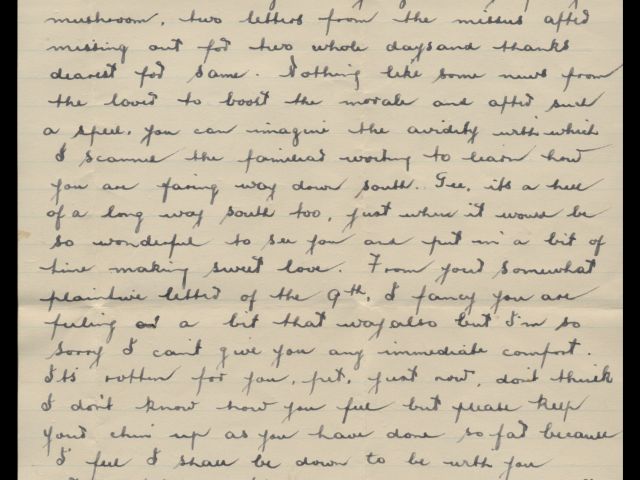 mushroom, two letters from the missus after
missing out for two whole days and thanks
dearest for same. Nothing like some news from
the loved to boost the morale and after such
a spell, you can imagine the avidity with which
I scanned the familiar writing to learn how
you are faring way down south. Gee, its a hell
of a long way south too, just when it would be
so wonderful to see you and put in a bit of
time making sweet love. From your somewhat
plaintive letter of the 9th, I fancy you are
feeling a bit that way also but I'm so
sorry I can't give you any immediate comfort.
Its rotten for you, pet, just now, don't think
I don't know how you feel but please keep
your chin up as you have done so far because
I feel I shall be down to be with you